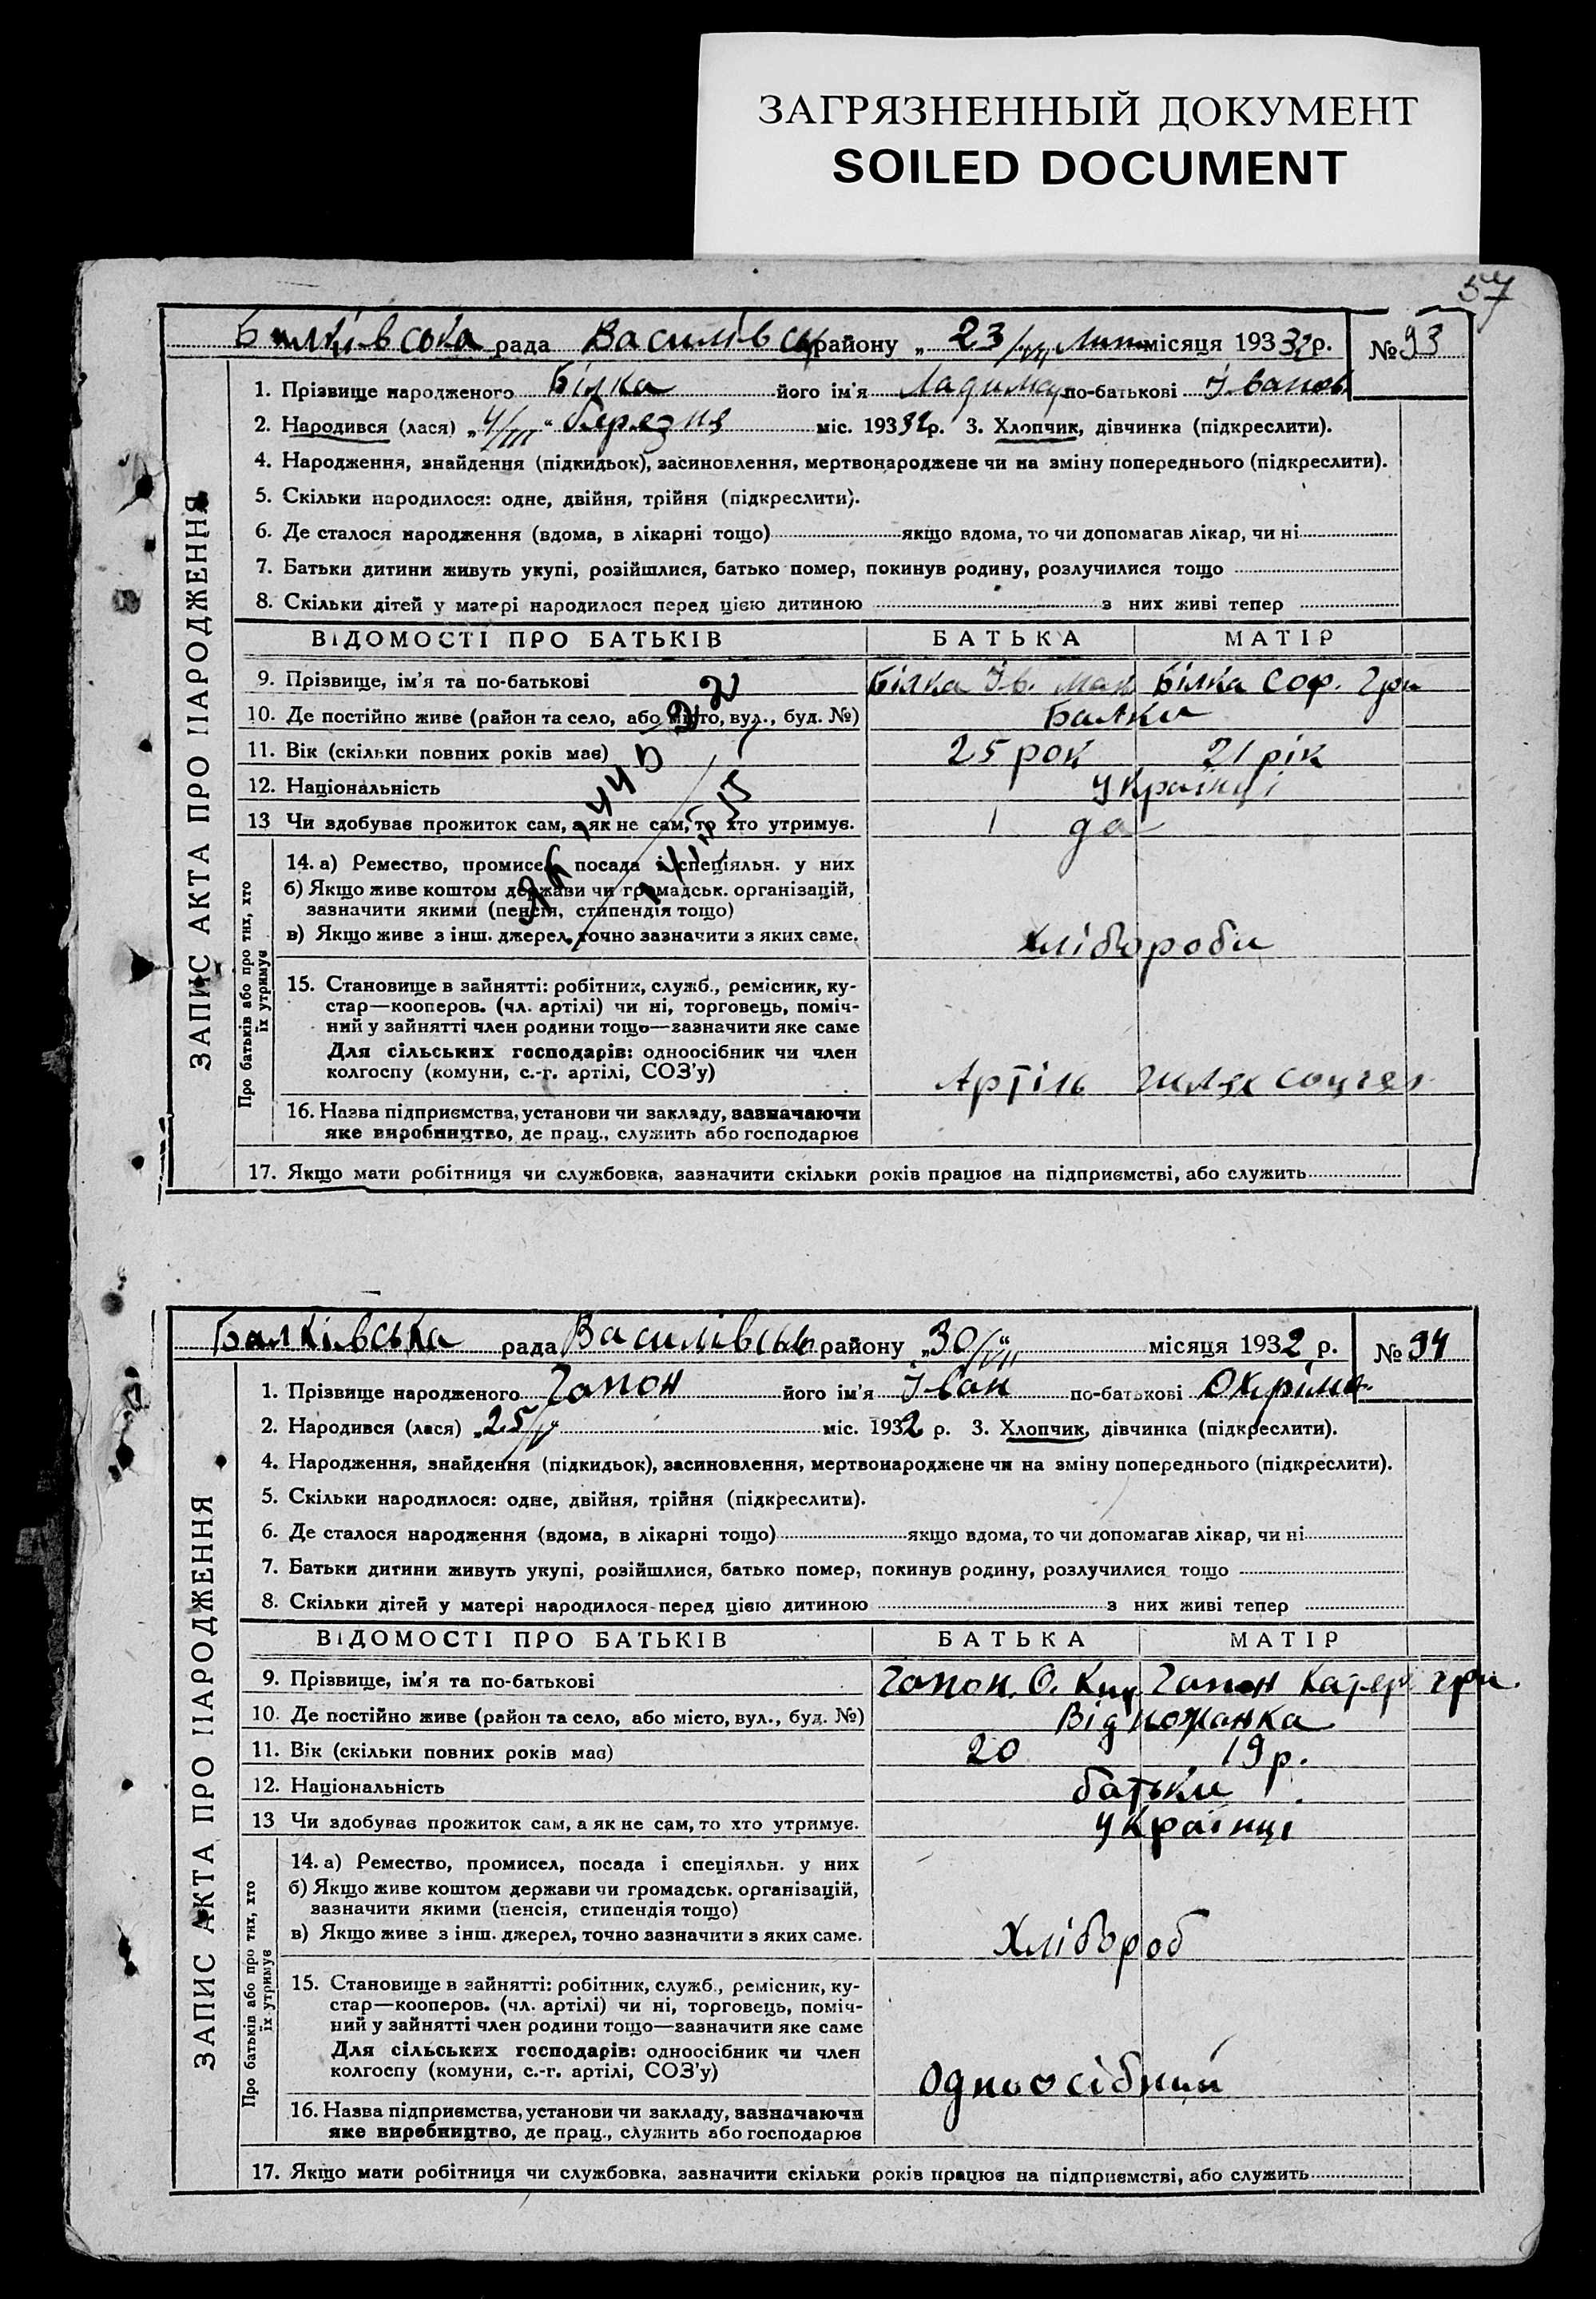 ЗАГРЯЗНЕННЫЙ ДОКУМЕНТ
SOILED DOCUMENT
57
Балківська рада Василівськ району „ 23/VII Лип місяця 1932 р. № 93
1. Прізвище народженого Білка його ім'я Ладимир по-батькові Іванов
2. Народився (лася) „4/III“ березня міс. 1932 р. 3. Хлопчик, дівчинка (підкреслити).
4. Народження, знайдення (підкидьок), засиновлення, мертвонароджене чи на зміну попереднього (підкреслити).
5. Скільки народилося: одне, двійня, трійня (підкреслити).
6. Де сталося народження (вдома, в лікарні тощо) якщо вдома, то чи допомагав лікар, чи ні
7. Батьки дитини живуть укупі, розійшлися, батько помер, покинув родину, розлучилися тощо
8. Скільки дітей у матері народилося перед цією дитиною з них живі тепер
ЗАПИС АКТА ПРО НАРОДЖЕННЯ
ВІДОМОСТІ ПРО БАТЬКІВ БАТЬКА МАТІР
9. Прізвище, ім'я та по-батькові Білка Ів. Мак Білка Соф. Гри
10. Де постійно живе (район та село, або місто, вул., буд. №) Балки
11. Вік (скільки повних років має) 25 рок 21 рік
12. Національність українці
13 Чи здобуває прожиток сам, а як не сам, то хто утримує. да
Про батьків або про тих, хто
їх утримує
14. а) Ремество, промисел, посада і спеціяльн. у них
б) Якщо живе коштом держави чи громадськ. організацій,
зазначити якими (пенсія, стипендія тощо)
в) Якщо живе з інш. джерел, точно зазначити з яких саме. хлібороби
15. Становище в зайнятті: робітник, служб., ремісник, ку-
стар—кооперов. (чл. артілі) чи ні, торговець, поміч-
ний у зайнятті член родини тощо—зазначити яке саме
Для сільських господарів: одноосібник чи член
колгоспу (комуни, с.-г. артілі, СОЗ'у) Артіль Шлях
16. Назва підприємства, установи чи закладу, зазначаючи
яке виробництво, де прац., служить або господарює
17. Якщо мати робітниця чи службовка, зазначити скільки років працює на підприємстві, або служить
Балківська рада Василівськ району „30/VII“ місяця 1932 р. № 94
1. Прізвище народженого Гапон його ім'я Іван по-батькові Охрімо
2. Народився (лася) „25/V“ міс. 1932 р. 3. Хлопчик, дівчинка (підкреслити).
4. Народження, знайдення (підкидьок), засиновлення, мертвонароджене чи на зміну попереднього (підкреслити).
5. Скільки народилося: одне, двійня, трійня (підкреслити).
6. Де сталося народження (вдома, в лікарні тощо) якщо вдома, то чи допомагав лікар, чи ні
7. Батьки дитини живуть укупі, розійшлися, батько помер, покинув родину, розлучилися тощо
8. Скільки дітей у матері народилося перед цією дитиною з них живі тепер
ЗАПИС АКТА ПРО НАРОДЖЕННЯ
ВІДОМОСТІ ПРО БАТЬКІВ БАТЬКА МАТІР
9. Прізвище, ім'я та по-батькові Гапон. О. Кир Гапон Катер Гри.
10. Де постійно живе (район та село, або місто, вул., буд. №)
11. Вік (скільки повних років має) 20 19 р.
12. Національність батьки
13 Чи здобуває прожиток сам, а як не сам, то хто утримує. українці
Про батьків або про тих, хто
їх утримує
14. а) Ремество, промисел, посада і спеціяльн. у них
б) Якщо живе коштом держави чи громадськ. організацій,
зазначити якими (пенсія, стипендія тощо)
в) Якщо живе з інш. джерел, точно зазначити з яких саме. Хлібороб
15. Становище в зайнятті: робітник, служб., ремісник, ку-
стар—кооперов. (чл. артілі) чи ні, торговець, поміч-
ний у зайнятті член родини тощо—зазначити яке саме
Для сільських господарів: одноосібник чи член
колгоспу (комуни, с.-г. артілі, СОЗ'у) Одноосібний
16. Назва підприємства, установи чи закладу, зазначаючи
яке виробництво, де прац., служить або господарює
17. Якщо мати робітниця чи службовка, зазначити скільки років працює на підприємстві, або служить